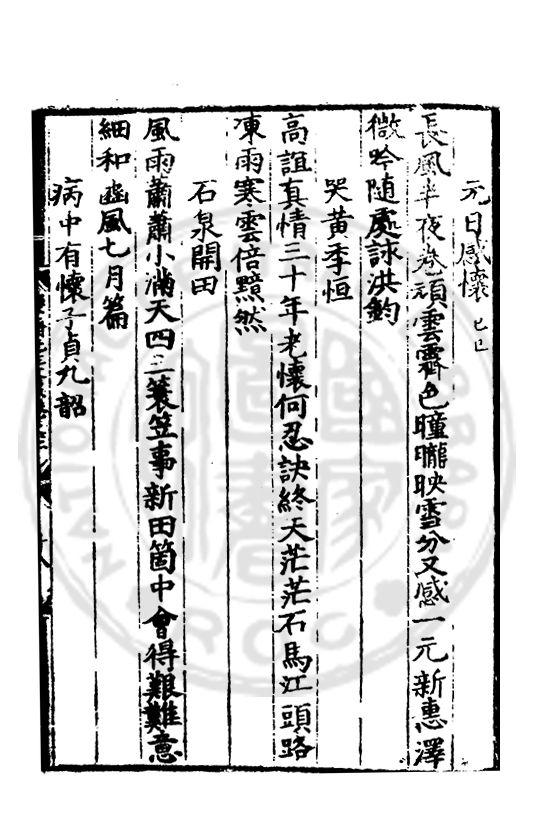 元日感懷 己巳
長風半夜卷頑雲霽色曈曨映雪分又感一元新惠澤
微吟随處詠洪鈞
哭黃季恒
高誼真情三十年老懷何忍訣終天茫茫石馬江頭路
凍雨寒雲倍黯然
石泉開田
風雨蕭蕭小滿天四三蓑笠事新田箇中會得艱難意
細和豳風七月篇
病中有懷子貞九韶